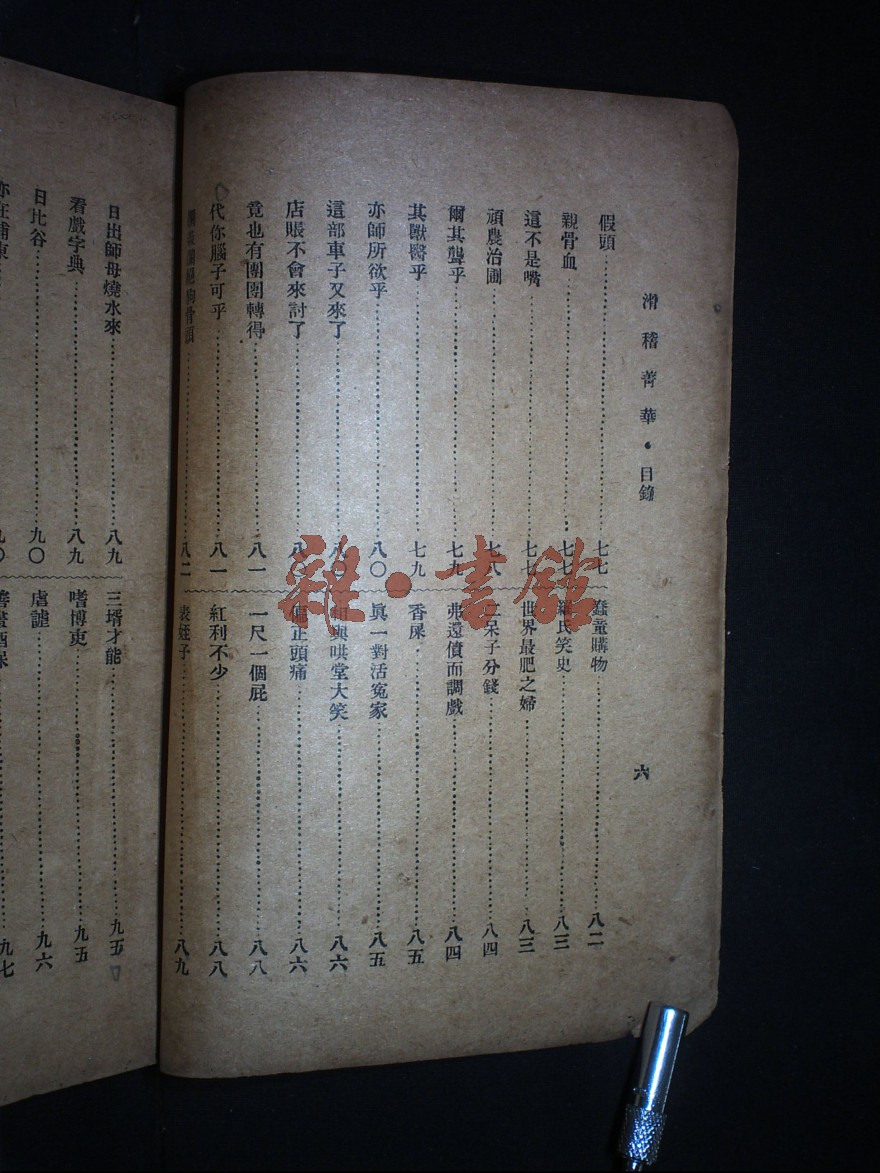 滑稽菁華・目錄
六
假頭…………七七
親骨血…………七七
這不是嘴…………七七
頑農治圃…………七八
爾其聾乎…………七九
其獸醫乎…………七九
亦師所欲乎…………八〇
這部車子又來了…………八〇
店賬不會來討了…………八〇
竟也有團團轉得…………八一
代你腦子可乎…………八一
骨頭…………八二
蠢童購物…………八二
羅氏笑史…………八三
世界最肥之婦…………八三
二呆子分錢…………八四
弗還債而調戲…………八四
香屎…………八五
眞一對活冤家…………八五
相與哄堂大笑…………八六
正頭痛…………八六
一尺一個屁…………八八
紅利不少…………八八
表姪子…………八九
日出師母燒水來…………八九
看戲字典…………八九
日比谷…………九〇
亦在浦東
九〇
三壻才能…………九五
嗜博吏…………九五
虐謔…………九六
九七
雜・書館